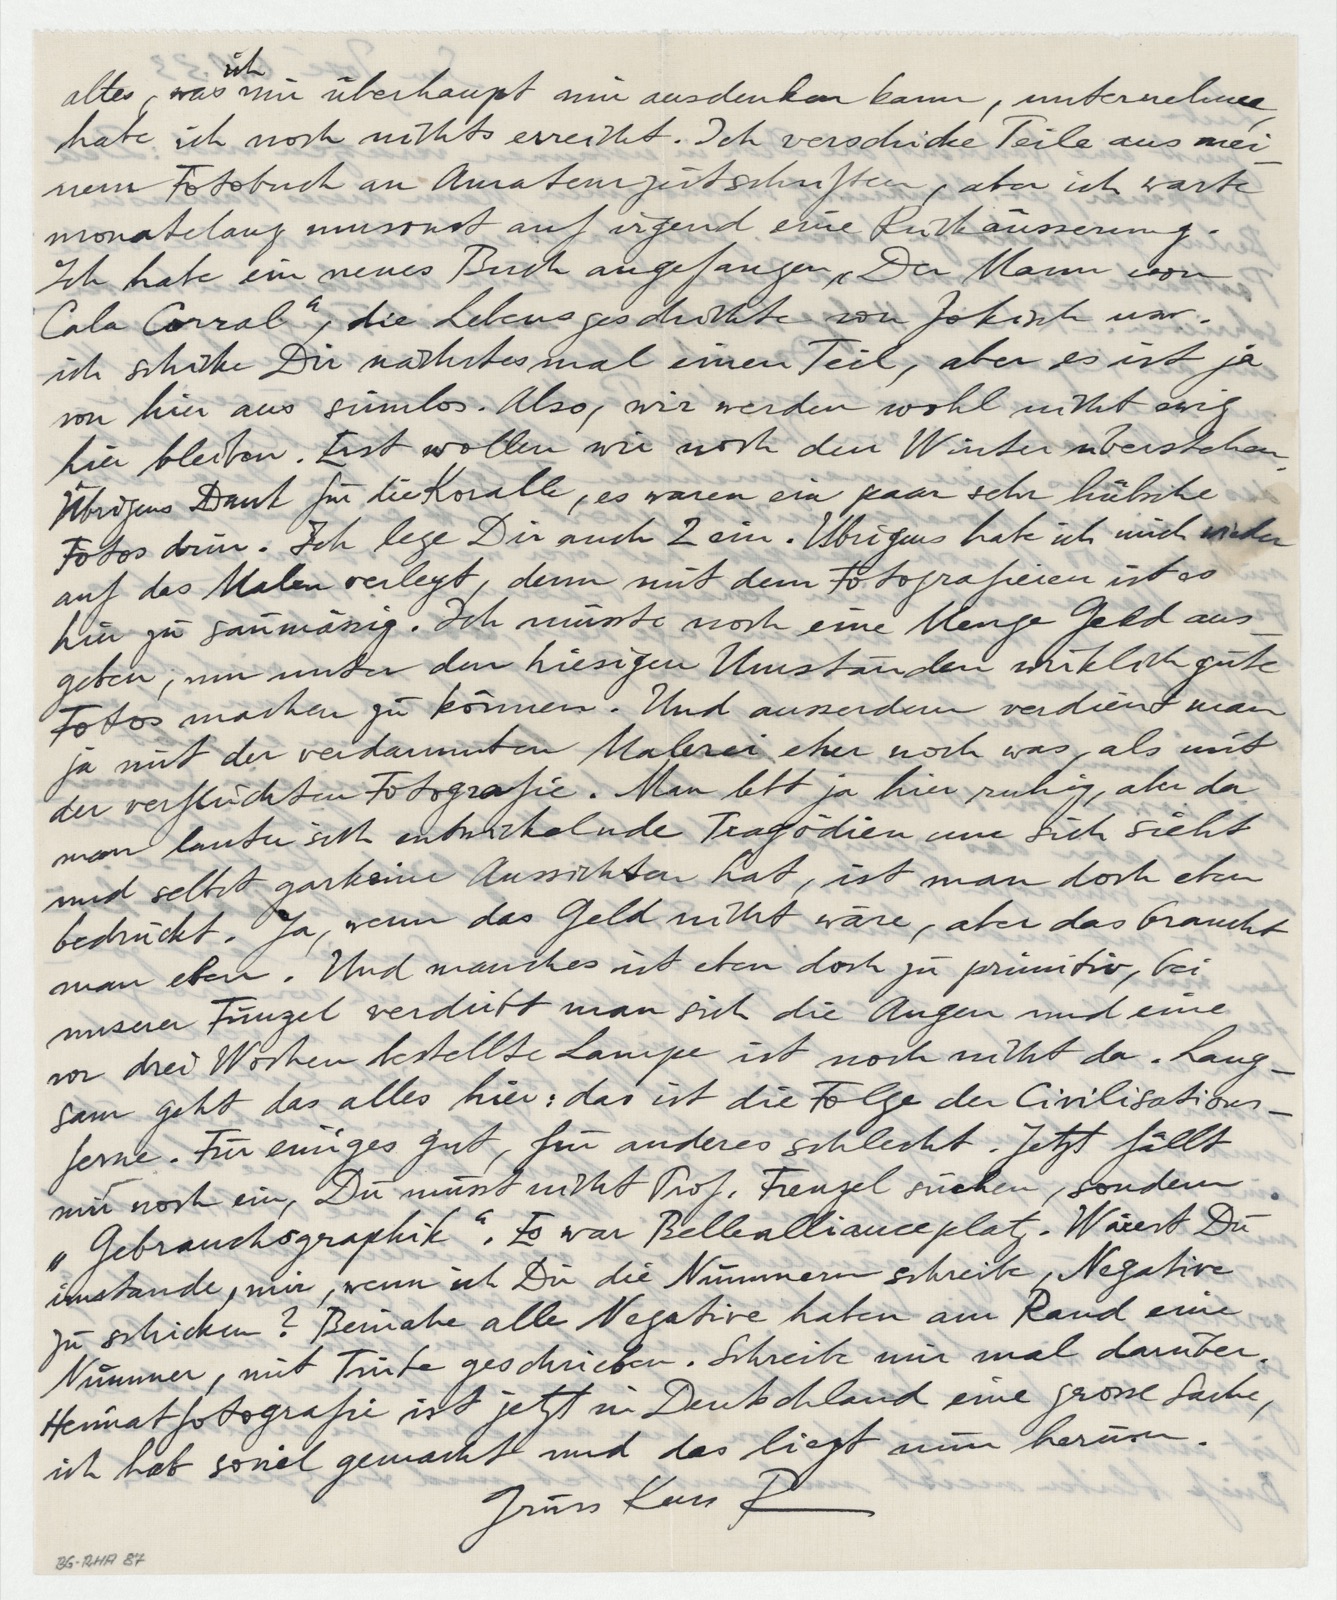 alles, was ich mir überhaupt nur ausdenken kann, unternehme,
habe ich noch nichts erreicht. Ich verschicke Teile aus mei-
nem Fotobuch an Amateurzeitschriften, aber ich warte
monatelang umsonst auf irgend eine Rückäusserung.
Ich habe ein neues Buch angefangen, „Der Mann von
Cala Corral“, die Lebensgeschichte von Jokisch usw.
ich schicke Dir nächstesmal einen Teil, aber es ist ja
von hier aus sinnlos. Also, wir werden wohl nicht ewig
hier bleiben. Erst wollen wir noch den Winter überstehen.
Übrigens Dank für die Koralle, es waren ein paar sehr hübsche
Fotos drin. Ich lege Dir auch 2 ein. Übrigens habe ich mich wieder
auf das Malen verlegt, denn mit dem Fotografieren ist es
hier zu saumässig. Ich müsste noch eine Menge Geld aus-
geben, um unter den hiesigen Umständen wirklich gute
Fotos machen zu können. Und ausserdem verdient man
ja mit der verdammten Malerei eher noch was, als mit
der verfluchten Fotografie. Man lebt ja hier ruhig, aber da
man lauter sich entwickelnde Tragödien um sich sieht
und selbst garkeine Aussichten hat, ist man doch eben
bedrückt. Ja, wenn das Geld nicht wäre, aber das braucht
man eben. Und manches ist eben doch zu primitiv, bei
unserer Funzel verdirbt man sich die Augen und eine
vor drei Wochen bestellte Lampe ist noch nicht da. Lang-
sam geht das alles hier: das ist die Folge der Civilisations-
ferne. Für einiges gut, für anderes schlecht. Jetzt fällt
mir noch ein, Du musst nicht Prof. Frenzel suchen, sondern
„Gebrauchsgraphik“. Es war Bellealliancepltz. Wärest Du
imstande, mir, wenn ich Dir die Nummern schreibe, Negative
zu schicken? Beinahe alle Negative haben am Rand eine
Nummer, mit Tinte geschrieben. Schreibe mir mal darüber.
Heimatfotografie ist jetzt in Deutschland eine grosse Sache,
ich hab soviel gemacht und das liegt nun herum.
Gruss Kuss R
BG-RHA 87